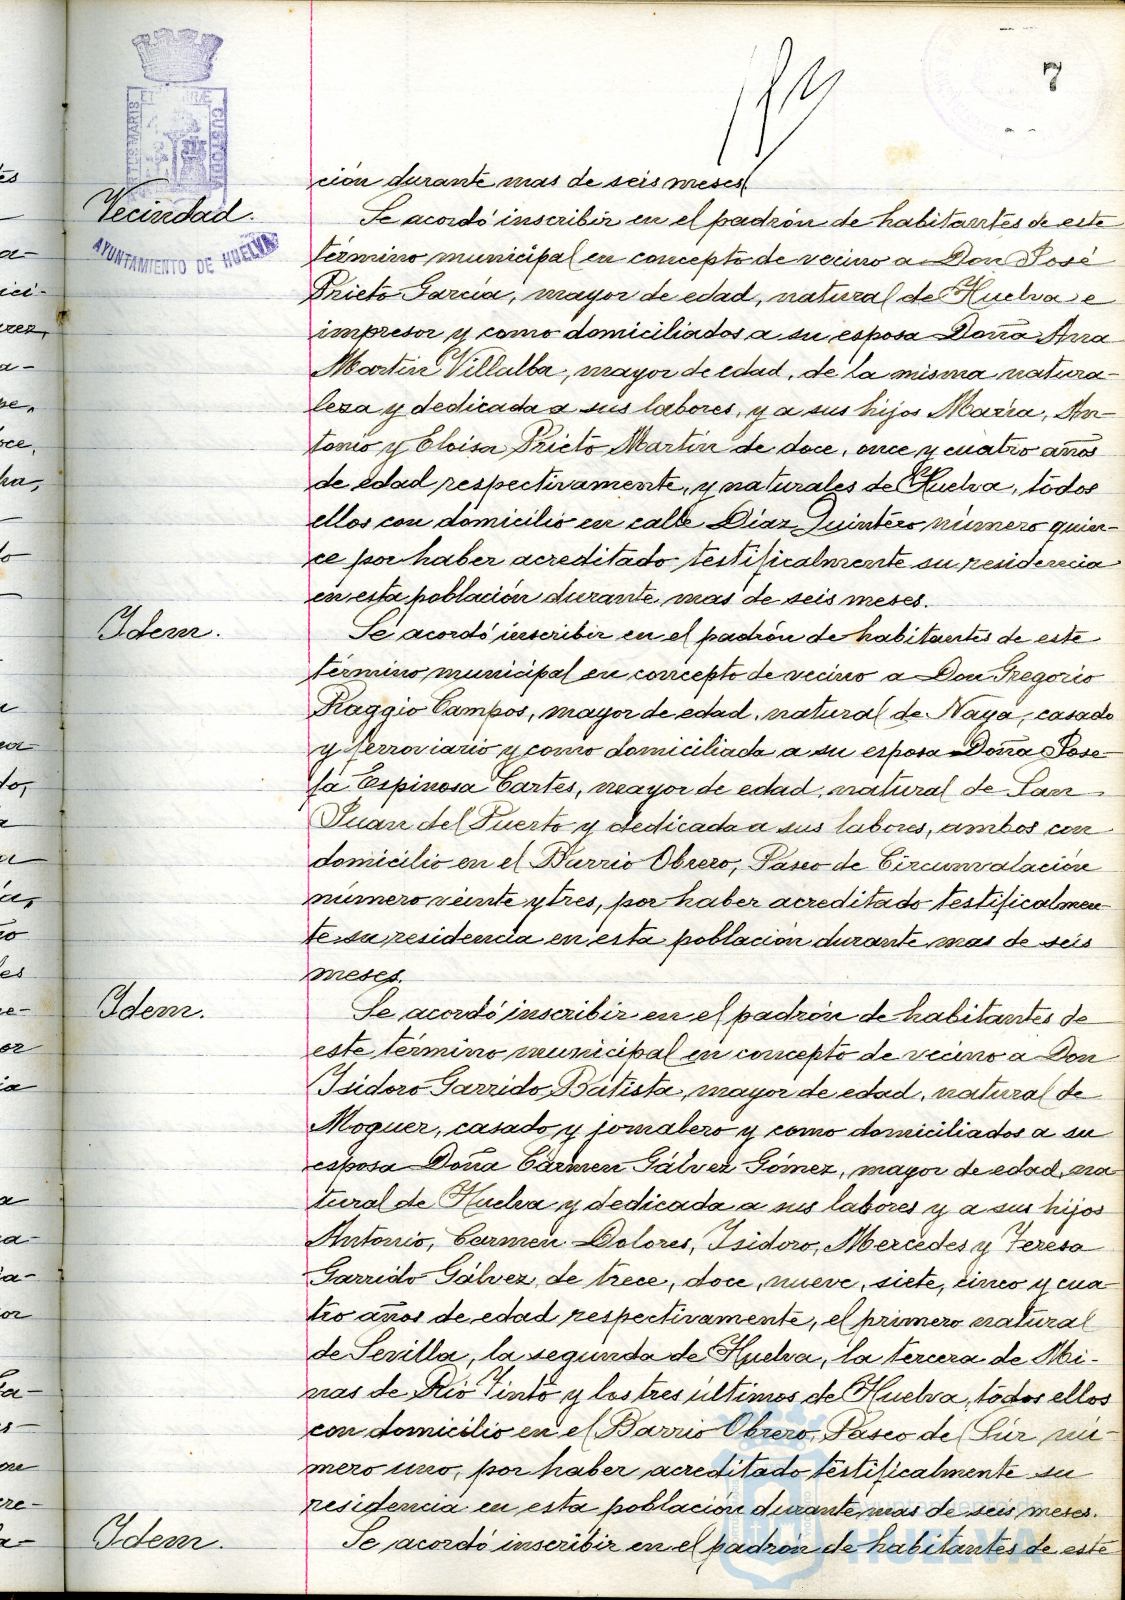 7
ción durante mas de seis meses.
Vecindad.
AYUNTAMIENTO DE HUELVA
Se acordó inscribir en el padrón de habitantes de este
término municipal en concepto de vecino a Don José
Prieto García, mayor de edad, natural de Huelva e
impresor y como domiciliados a su esposa Doña Ana
Martín Villalba, mayor de edad, de la misma natura-
leza y dedicada a sus labores, y a sus hijos María, An-
tonio y Eloisa Prieto Martín de doce, once y cuatro años
de edad respectivamente, y naturales de Huelva, todos
ellos con domicilio en calle Díaz Quintero número quin-
ce por haber acreditado testificalmente su residencia
en esta población durante mas de seis meses.
Idem.
Se acordó inscribir en el padrón de habitantes de este
término municipal en concepto de vecino a Don Gregorio
Raggio Campos, mayor de edad, natural de Naya, casado
y ferroviario y como domiciliada a su esposa Doña Jose-
fa Espinosa Cartes, mayor de edad, natural de San
Juan del Puerto y dedicada a sus labores, ambos con
domicilio en el Barrio Obrero, Paseo de Circunvalación
número veinte y tres, por haber acreditado testificalmen-
te su residencia en esta población durante mas de seis
meses.
Idem.
Se acordó inscribir en el padrón de habitantes de
este término municipal en concepto de vecino a Don
Isidoro Garrido Batista, mayor de edad, natural de
Moguer, casado y jornalero y como domiciliados a su
esposa Doña Carmen Gálvez Gómez, mayor de edad, na-
tural de Huelva y dedicada a sus labores y a sus hijos
Antonio, Carmen Dolores, Isidoro, Mercedes y Teresa
Garrido Gálvez, de trece, doce, nueve, siete, cinco y cua-
tro años de edad respectivamente, el primero natural
de Sevilla, la segunda de Huelva, la tercera de Mi-
nas de Rio Tinto y los tres últimos de Huelva, todos ellos
con domicilio en el Barrio Obrero, Paseo del Sur nú-
mero uno, por haber acreditado testificalmente su
residencia en esta población durante mas de seis meses.
Idem.
Se acordó inscribir en el padrón de habitantes de este